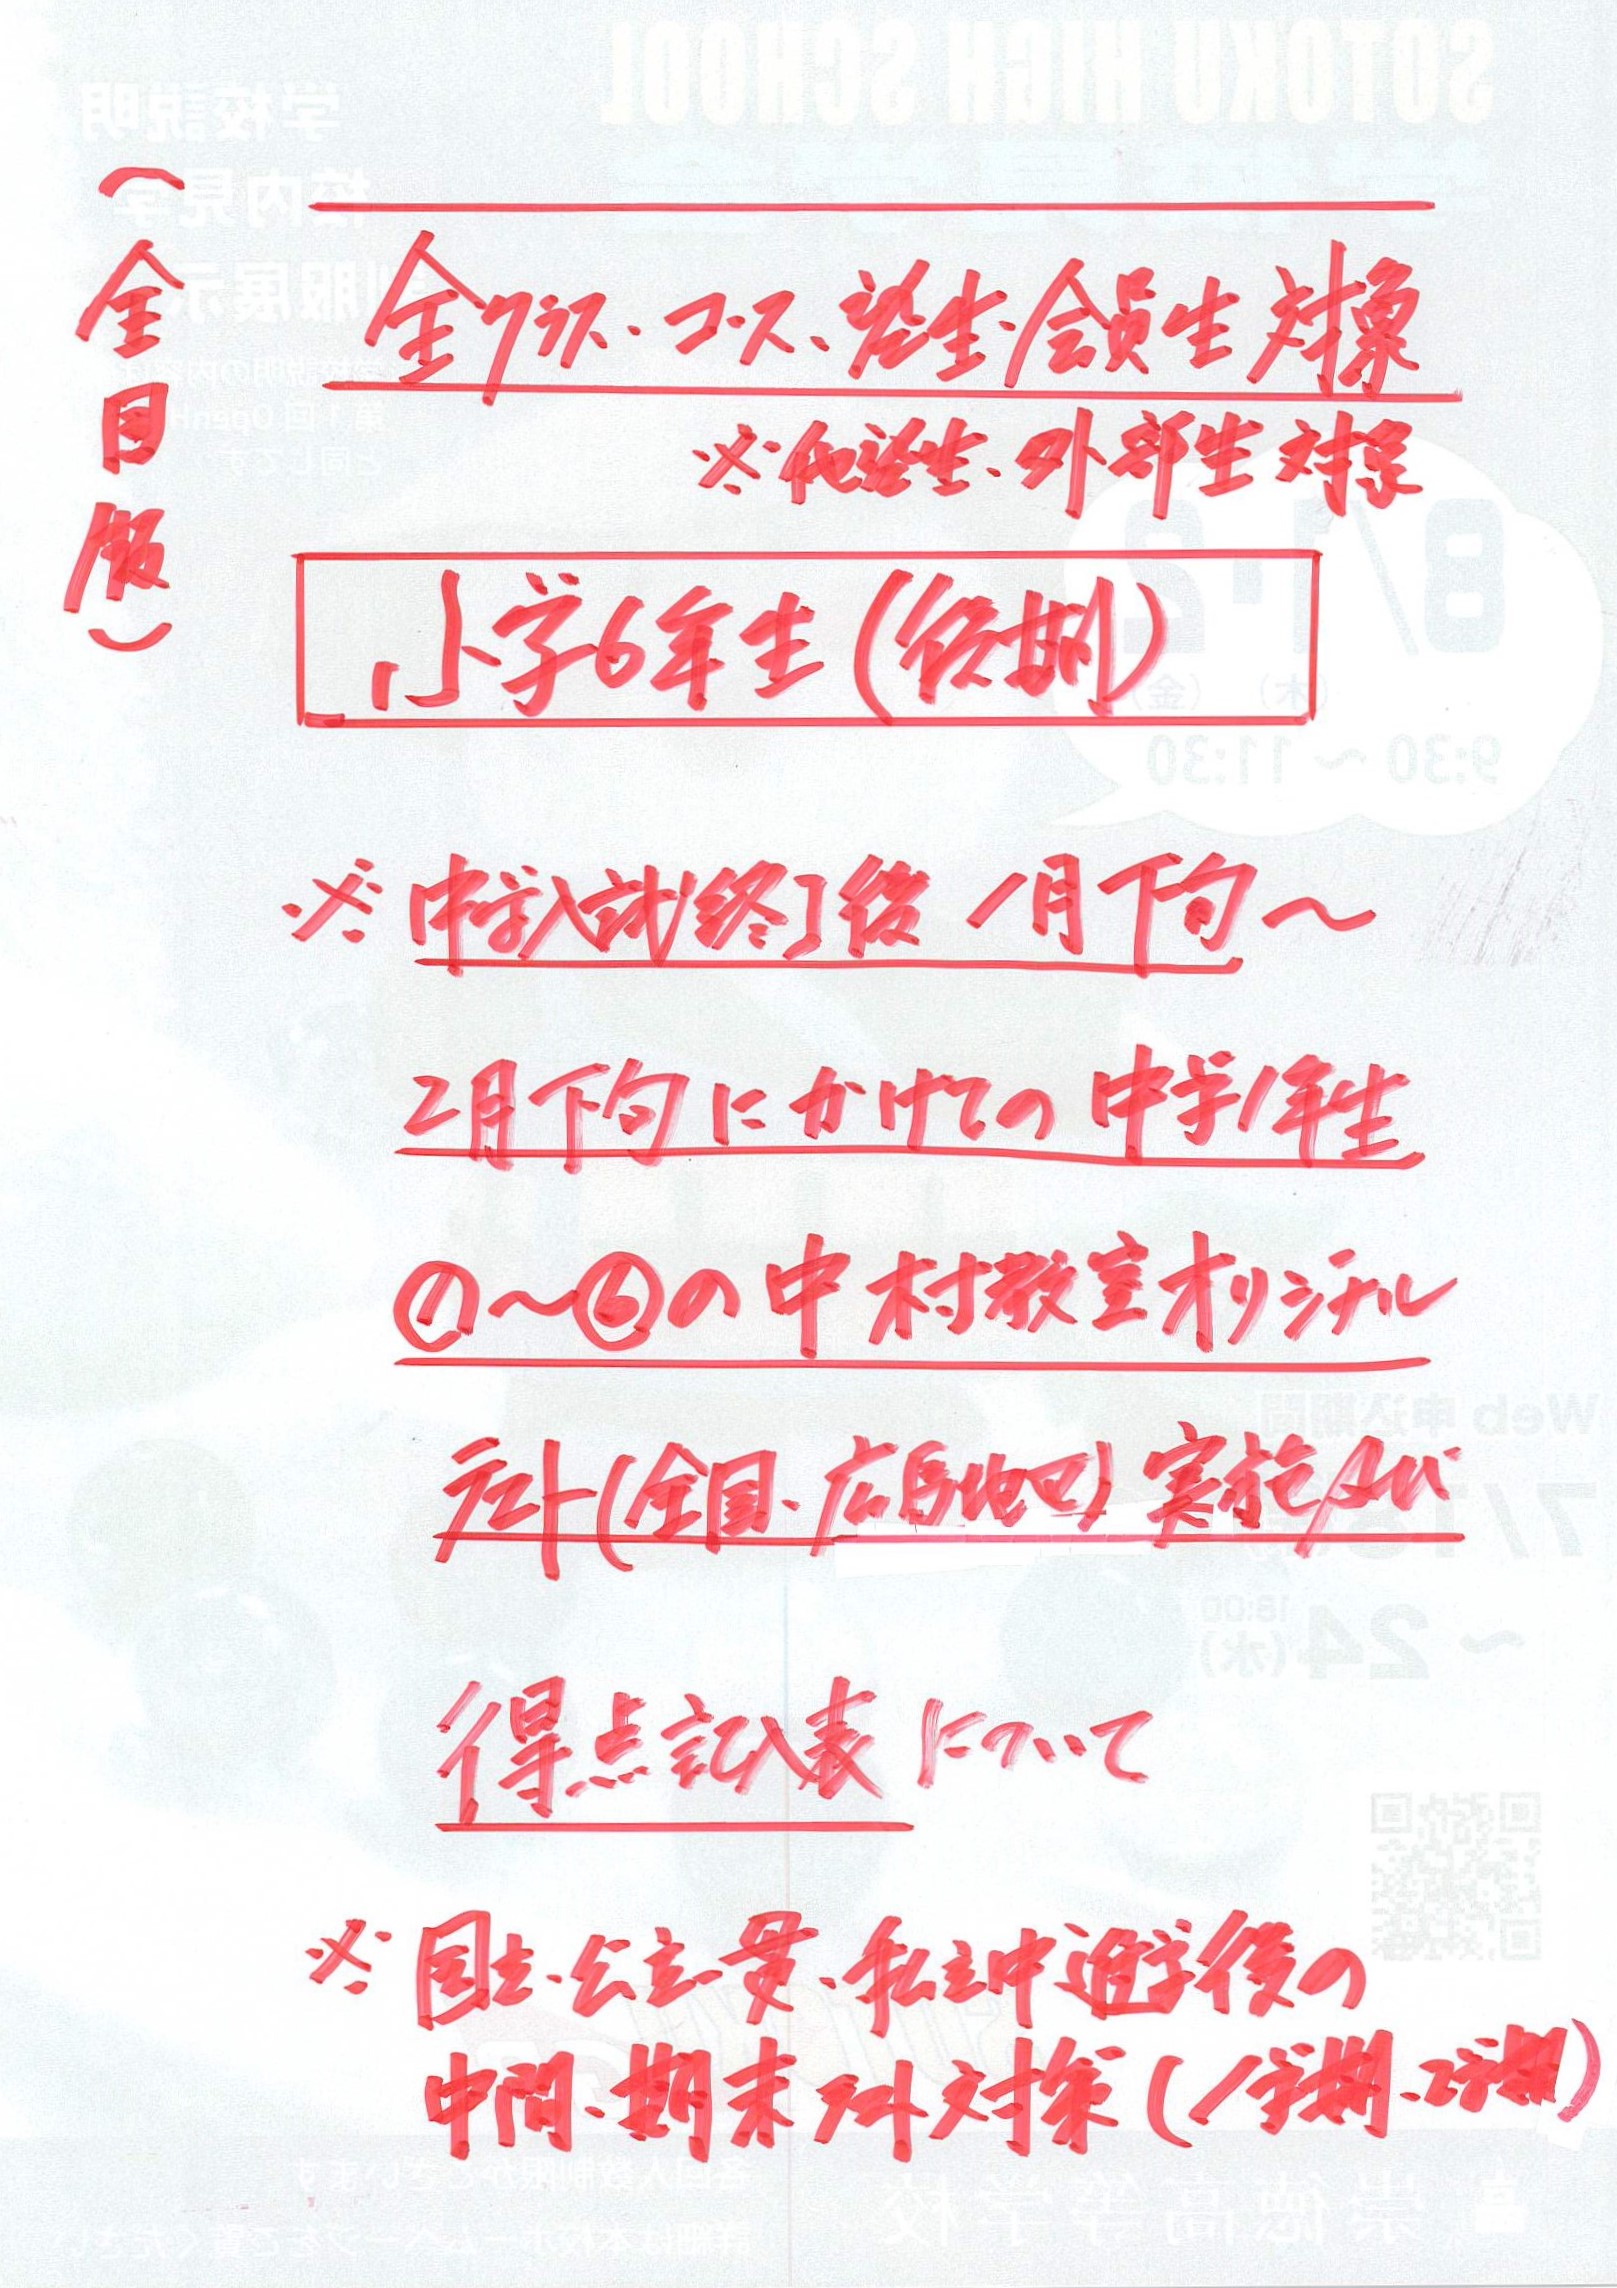 (全日版)
全クラス・コース、塾生・会員生対象
※他塾生・外部生対象
小学6年生(後期)
※中学入試終了後1月下旬～
2月下旬にかけての中学1年生
①～⑥の中村教室オリジナル
テスト(全国・広島地区)実施及び
得点記入表について
※国立・公立一貫・私立中進学後の
中間・期末テスト対策(1学期・2学期)